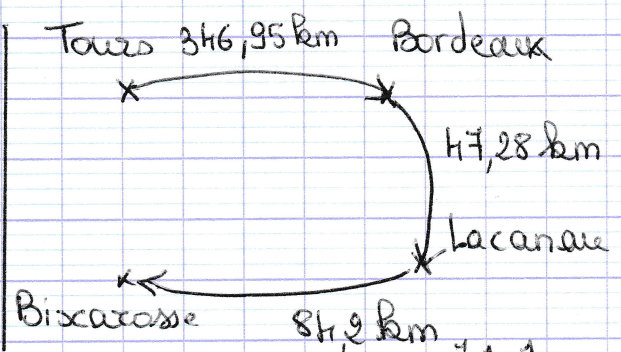 Tours 346,95 km Bordeaux
47,28 km
Lacanau
Biscarosse
84,2 km